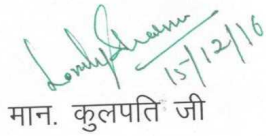 15/12/16
मान. कुलपति जी